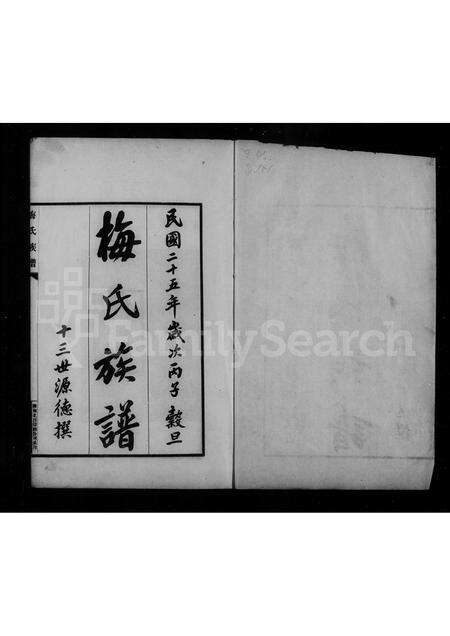 民國二十五年歲次丙子 穀旦
梅氏族譜
十三世源德撰
梅氏族譜
FamilySearch